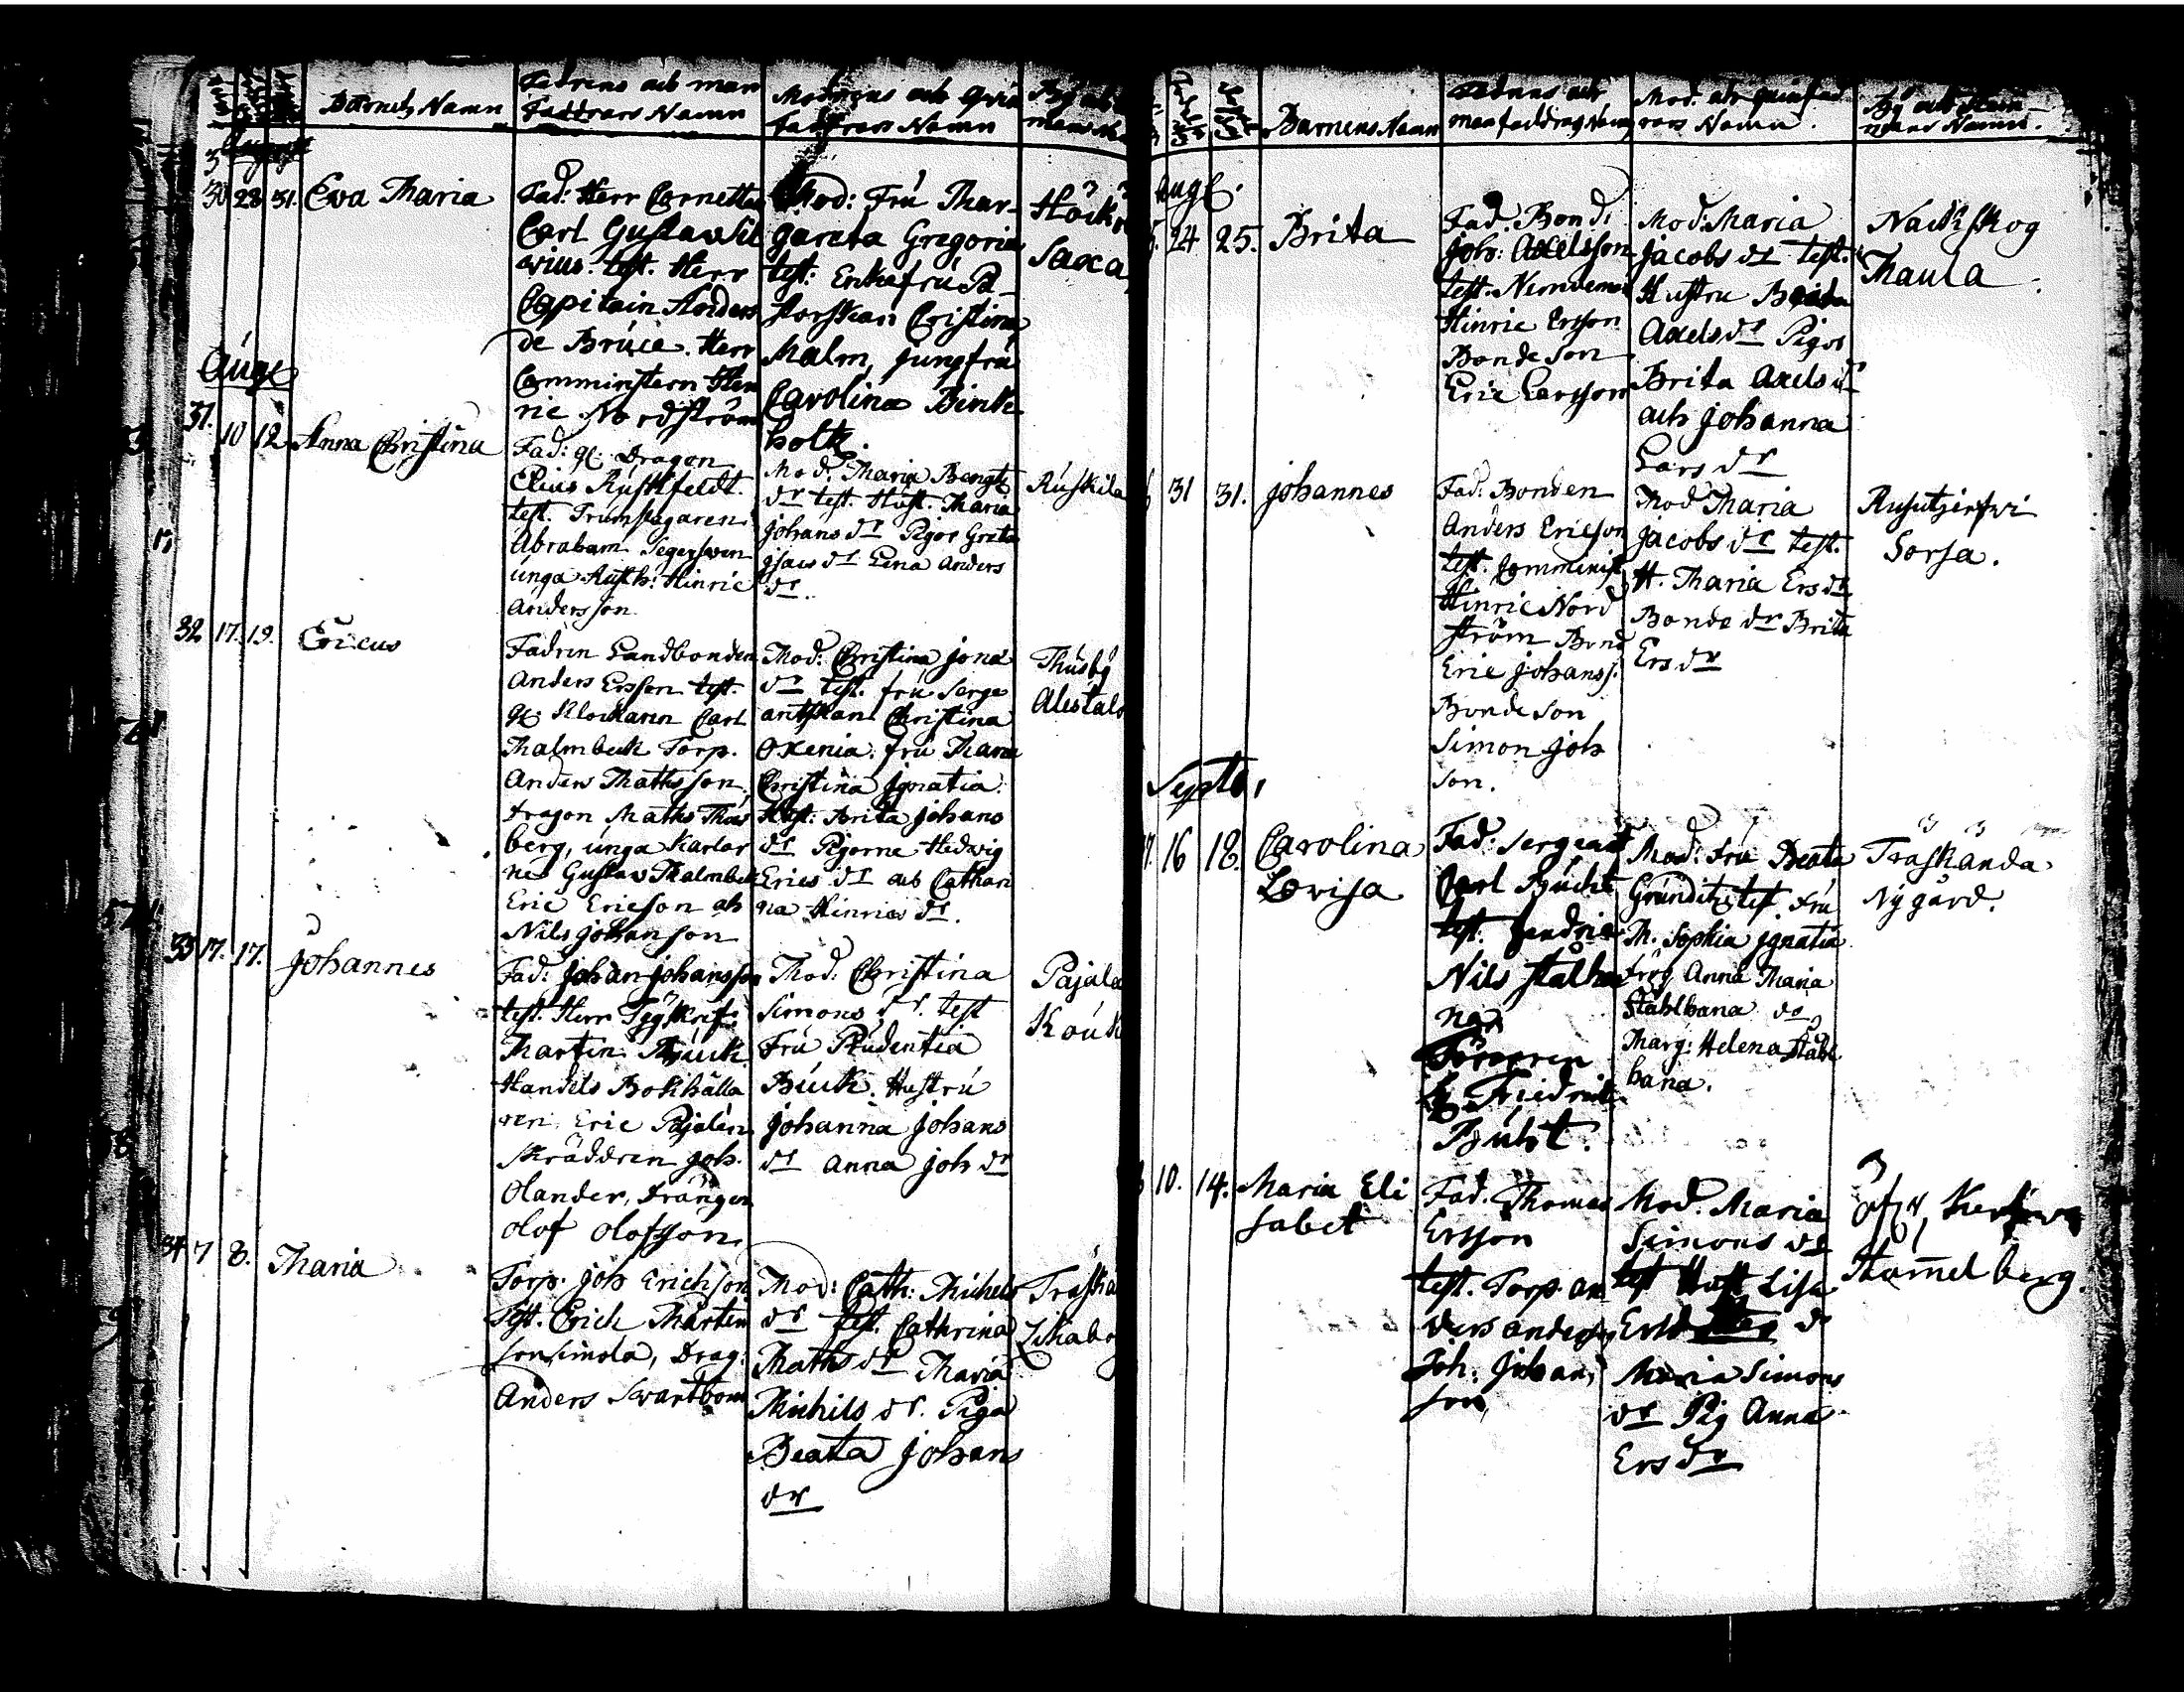 Barnets Namn
Fadrens och man
faddrars Namn
Modrens och Qvin
faddrars Namn
30 28 31. Eva Maria
Fad: Herr Cornetten
Carl Gustaw Sil
vius. test. Herr
Capitain Anders
de Bruce. Herr
Comministern Hen
ric Nordström
Mod: Fru Mar-
gareta Gregoria
test: Enkefru Pa
storskan Cristina
Malm, jungfru
Carolina Bink
holtz.
Saxa
Aug
31. 10 12 Anna Christina
Fad: gl. Dragon
Elias Rüstfeldt.
test. Trumslagaren
Abraham Segersven
unga Rusth: Hinric
Andersson
Mod: Maria Bengts
dr test. Hust. Maria
Johans dr Pigor Greta
Isacs dr Lena Anders
dr.
Ruskila
32 17. 19. Ericus
Fadren Landbonden
Anders Ersson test.
gl. Klockaren Carl
Malmbeck Torp.
Anders Mathsson,
Dragon Maths Mas
berg, unga Karlar
ne Gustav Malmbeck
Eric Ericson och
Nils Johanson
Mod: Christina Jona
dr test. fru Serge
antskan Christina
Oxenia. fru Maria
Christina Ignatia.
Hust: Brita Johans
dr Pigorne Hedwig
Erics dr och Cathari
na Hinrics dr.
Musby
Alastalo
33 17. 17. Johannes
Fad: Johan Johansson
test. Herr
Martin Buck
Handels Bokhålla
ren Eric Pajalin
Skräddren Joh.
Olander, Drängen
Olof Olofsson
Mod: Christina
Simons dr. test
Fru Prudentia
Buck. Hustru
Johanna Johans
dr Anna Joh dr
Pajala
34 7 8. Maria
Torp. Joh Erichson
Test. Erich Marten
son Simola, Drag:
Anders Swartbom
Mod: Cath: Michels
dr test. Cathrina
Maths dr Maria
Michils dr. Piga
Beata Johans
dr
Barnens Namn
Fadrens och
man faddrars Namn
Mod. och quinfad
rars Namn.
By och Hem
mans Namn.
Aug.
24 25. Brita
Fad. Bond.
Joh: Axelsson
test. Nemdeman
Hinric Ersson
Bondeson
Eric Larsson
Mod: Maria
Jacobs dr test.
Hustru Brita
Axels dr Pigor
Brita Axels dr
och Johanna
Lars dr
Nackskog
Maula
31 31. Johannes
Fad: Bonden
Anders Ericson
test. Comminist
Hinric Nord
ström Bond
Eric Johanss.
Bondeson
Simon Joh
son.
Mod Maria
Jacobs dr test.
H. Maria Ers dr
Bonde dr Brita
Ers dr
Sorja.
Septb,
16 18. Carolina
Lovisa
Fad: Sergeant
Carl Bucht
test. Fendric
Nils Stålha
na
Friedric
Buht.
Mod: Fru Beata
Grunditz test. Fru
M. Sophia Ignatia
Frög Anna Maria
Stahlhana do
Marg: Helena Stahl
hana.
Traskanda
Nygård.
10. 14. Maria Eli
sabet
Fad. Thomas
Ersson
test. Torp. an
ders anders
Joh: Johans
son
Mod. Maria
Simons dr
test Hust Lisa
Maria Simons
dr Pig Anna
Ers dr
Hammelberg.